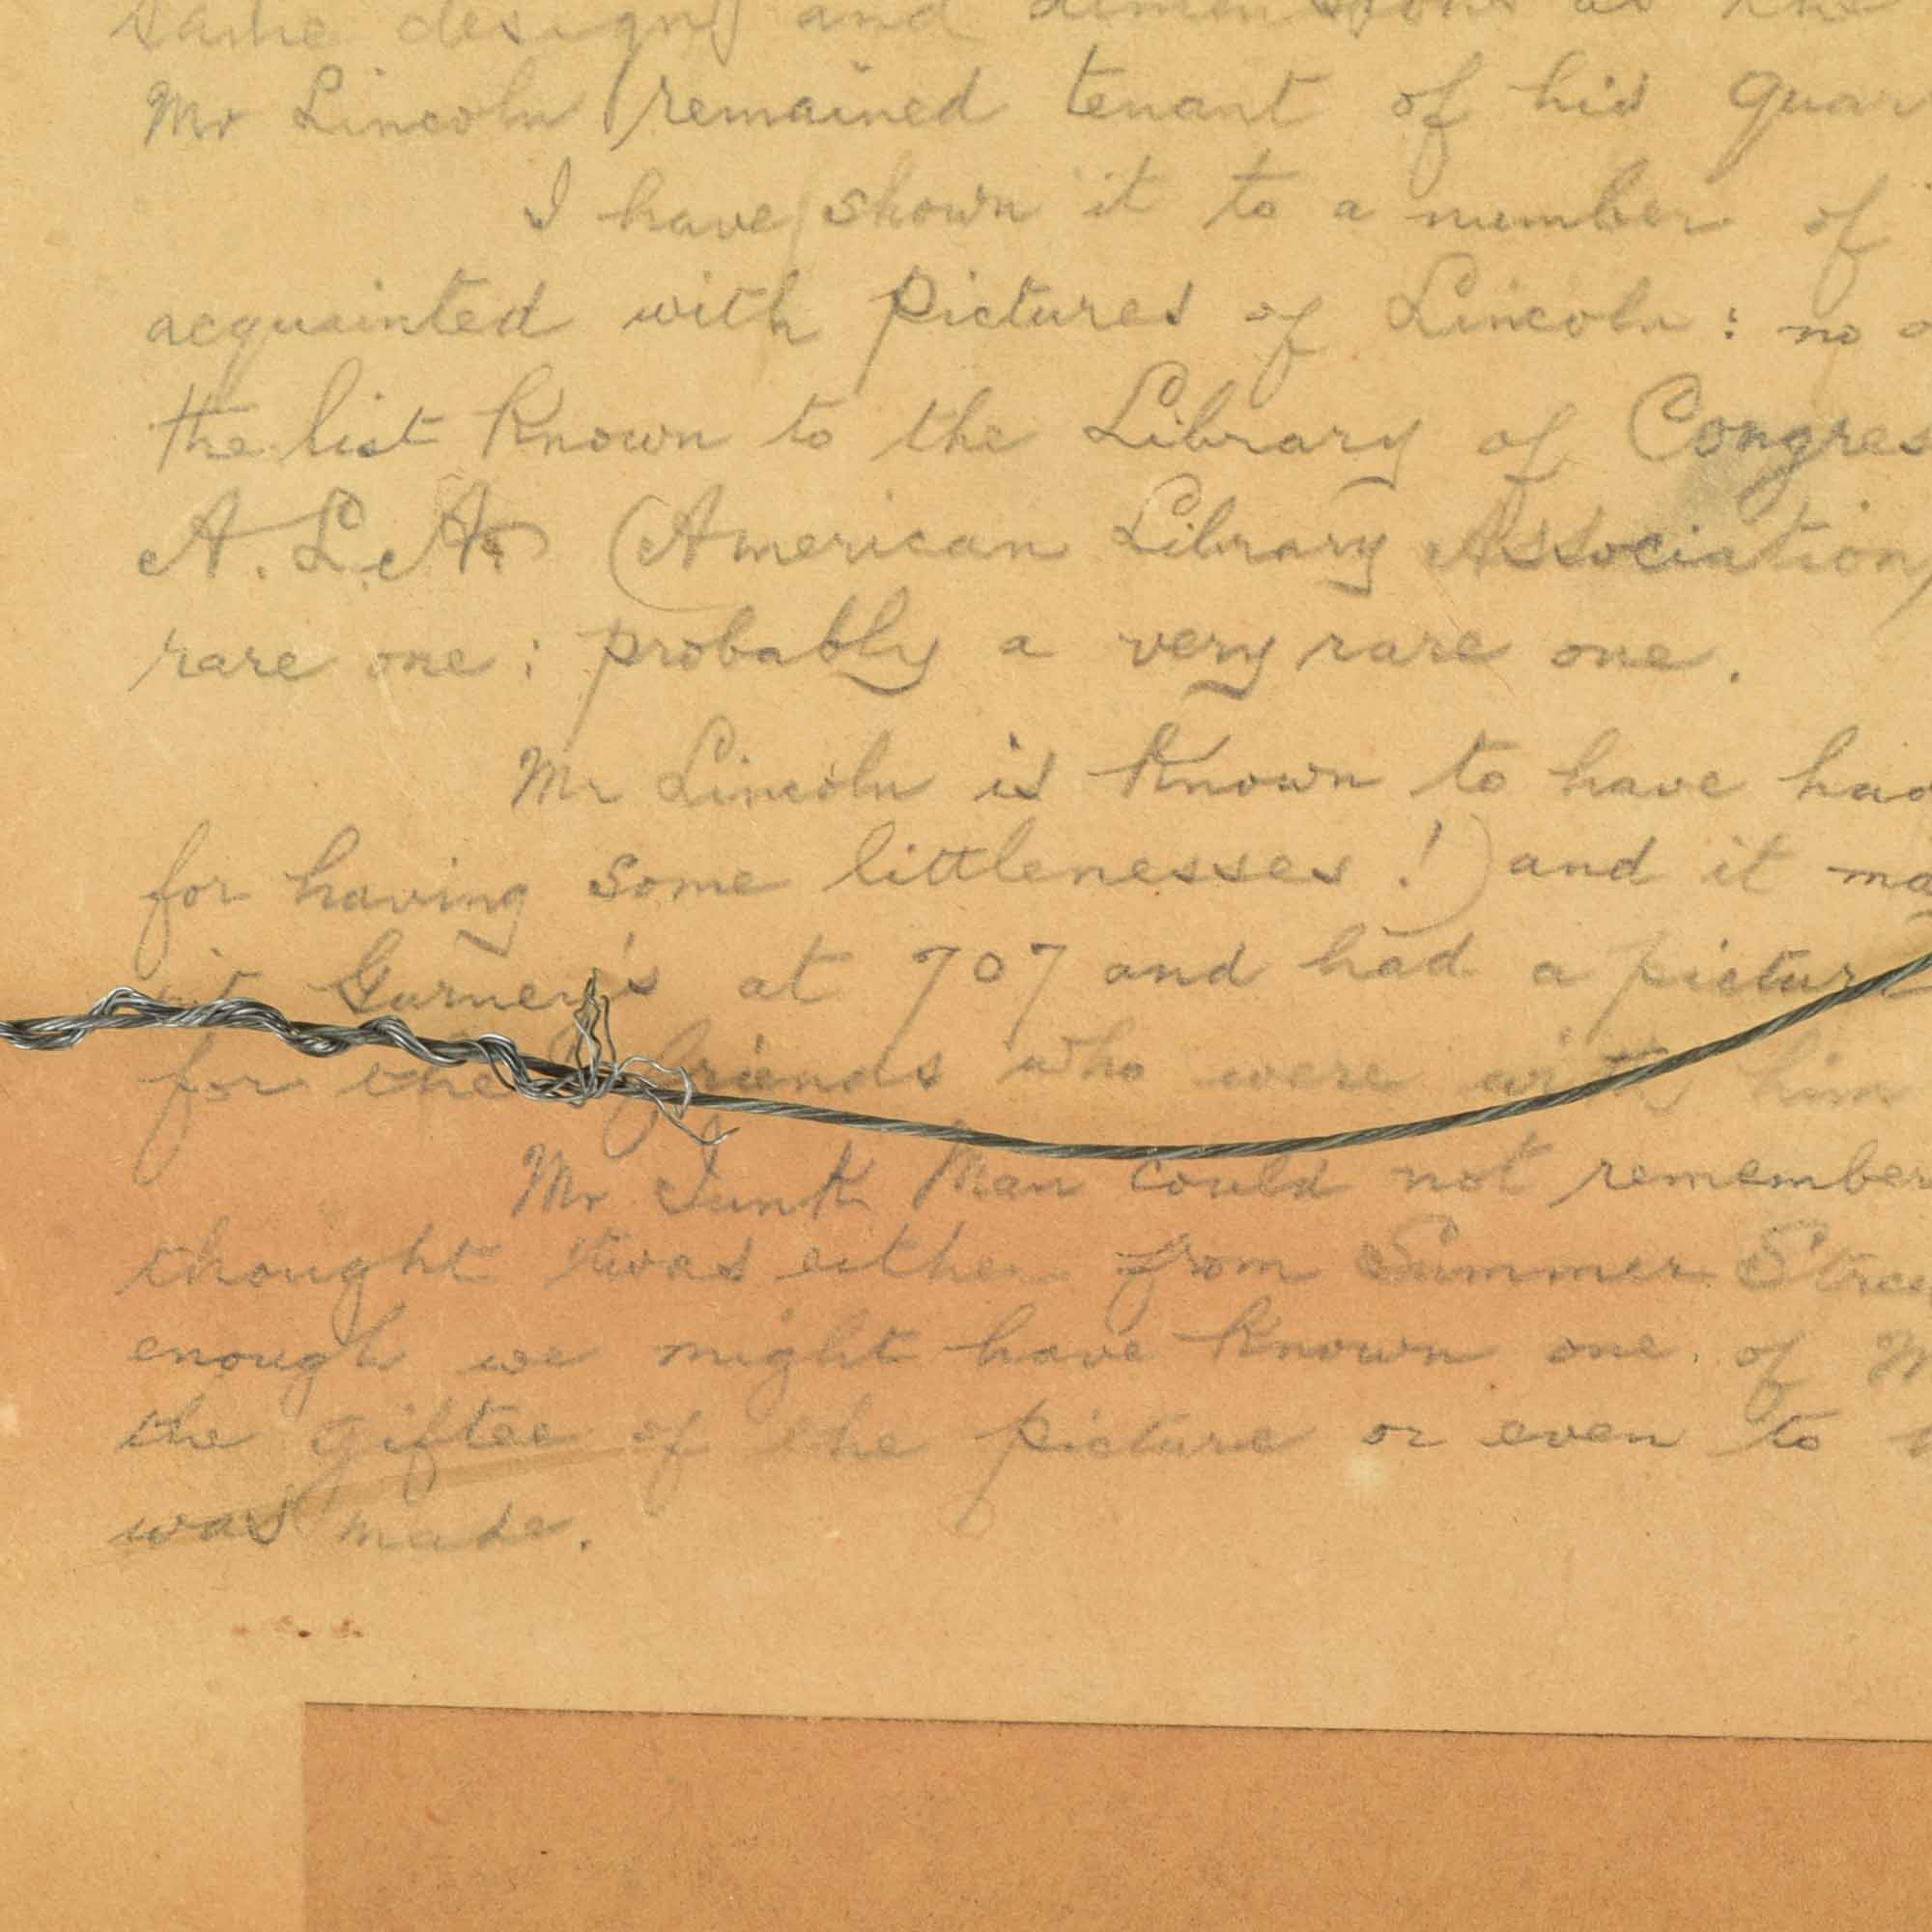 same design and dimensions as the
Mr Lincoln remained tenant of his quar
I have shown it to a number of
acquainted with pictures of Lincoln : no
the list known to the Library of Congres
A.L.A. (American Library Association)
rare one ; probably a very rare one .
Mr Lincoln is known to have had
for having some littlenesses ! ) and it
Gurney's at 707 and had a picture
for the friends who were with him
Mr Junk Man could not remember
thought 'twas either from Summer Stree
enough we might have known one of M
the giftee of the picture or even to
was made .